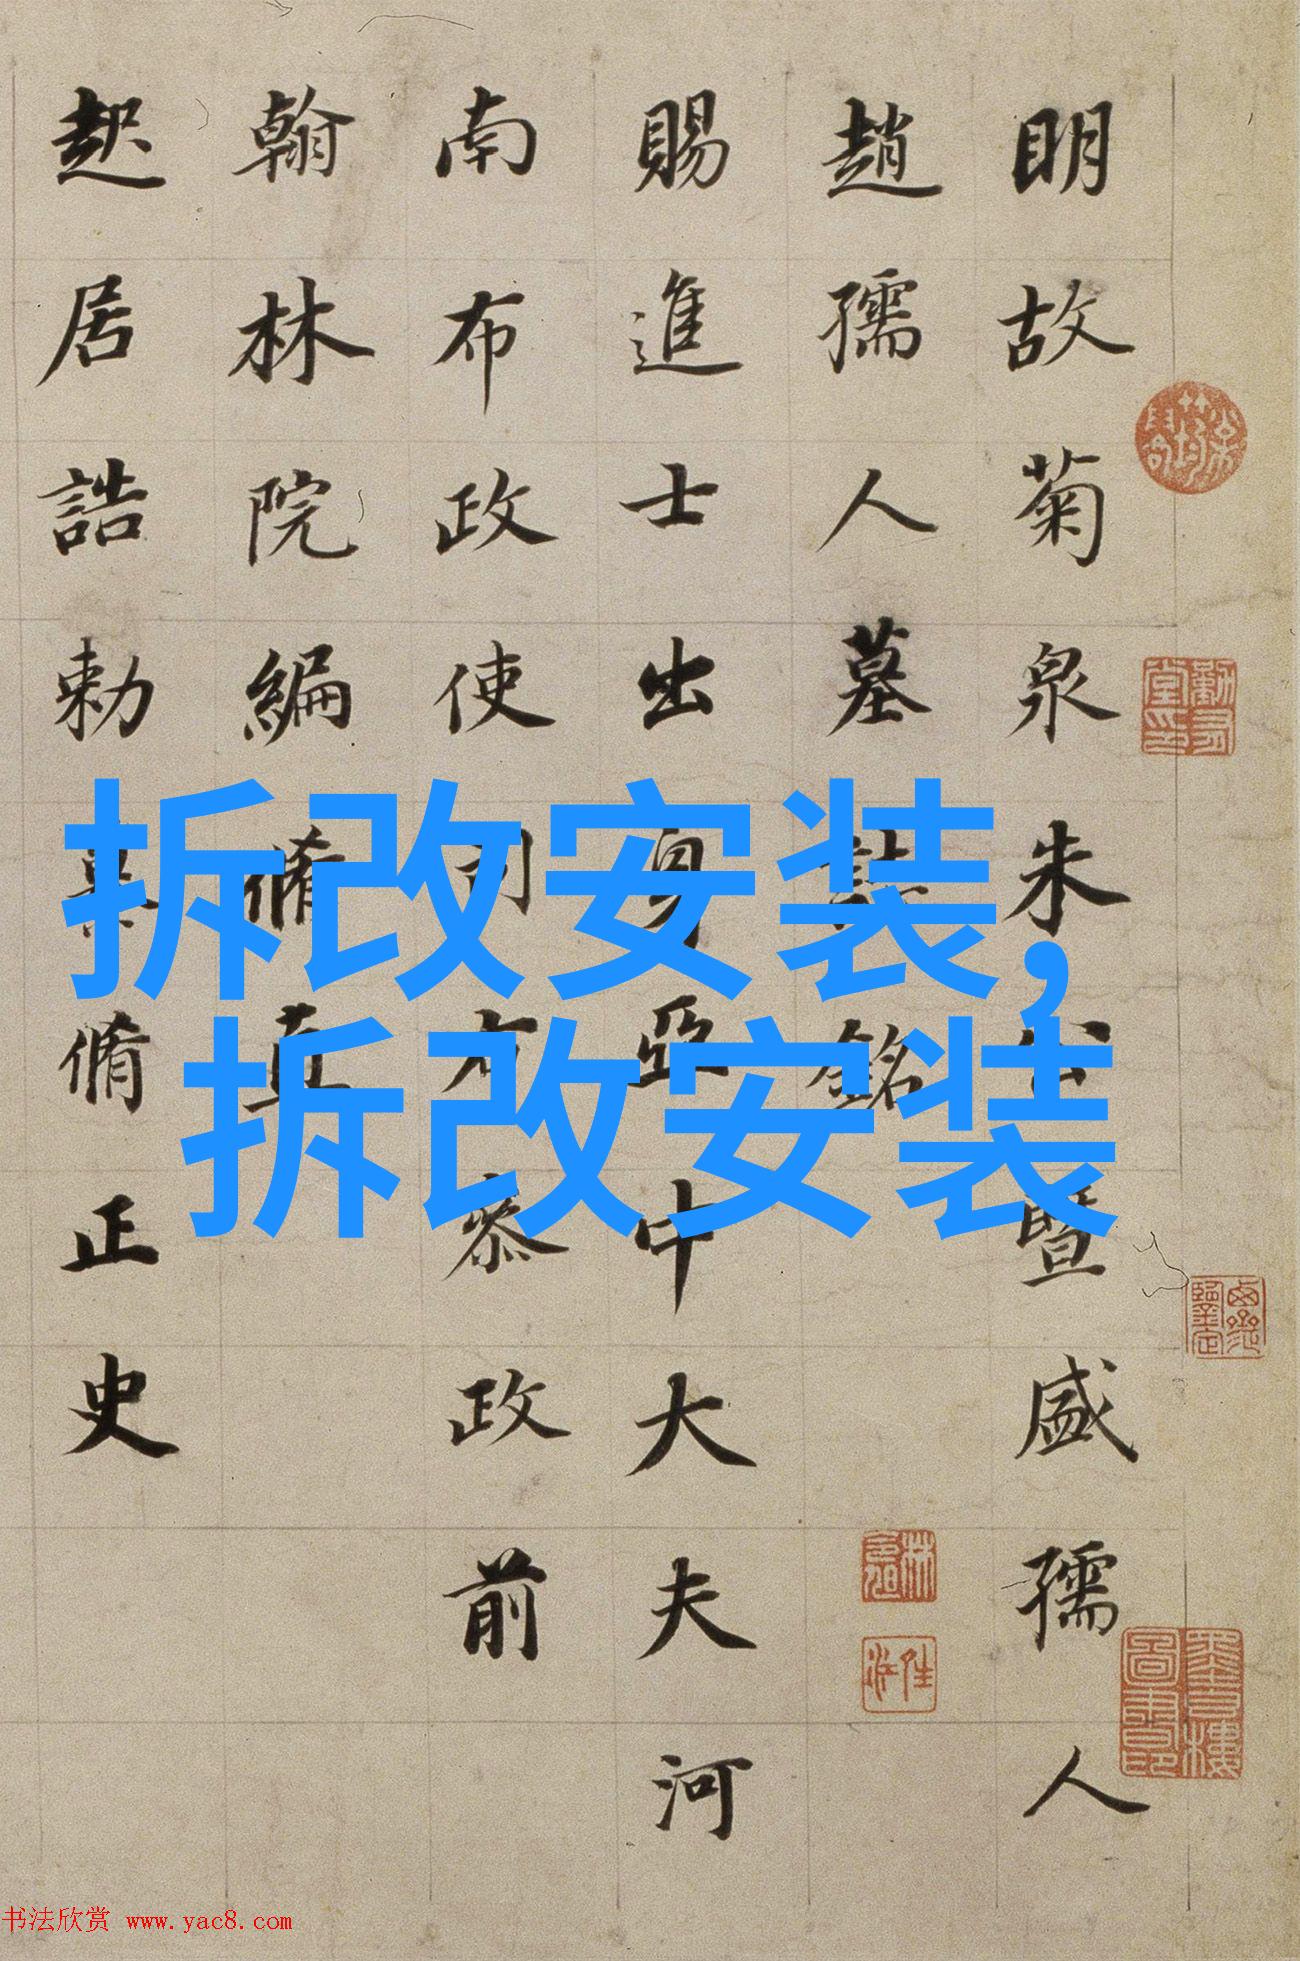 明故菊泉朱公暨盛孺人
趙孺人墓誌銘
賜進士出身亞中大夫河
南布政使司參政前
翰林院編脩直
起居誥勅兼脩正史
拆改安装,
拆改安装
书法欣赏 www.yac8.com